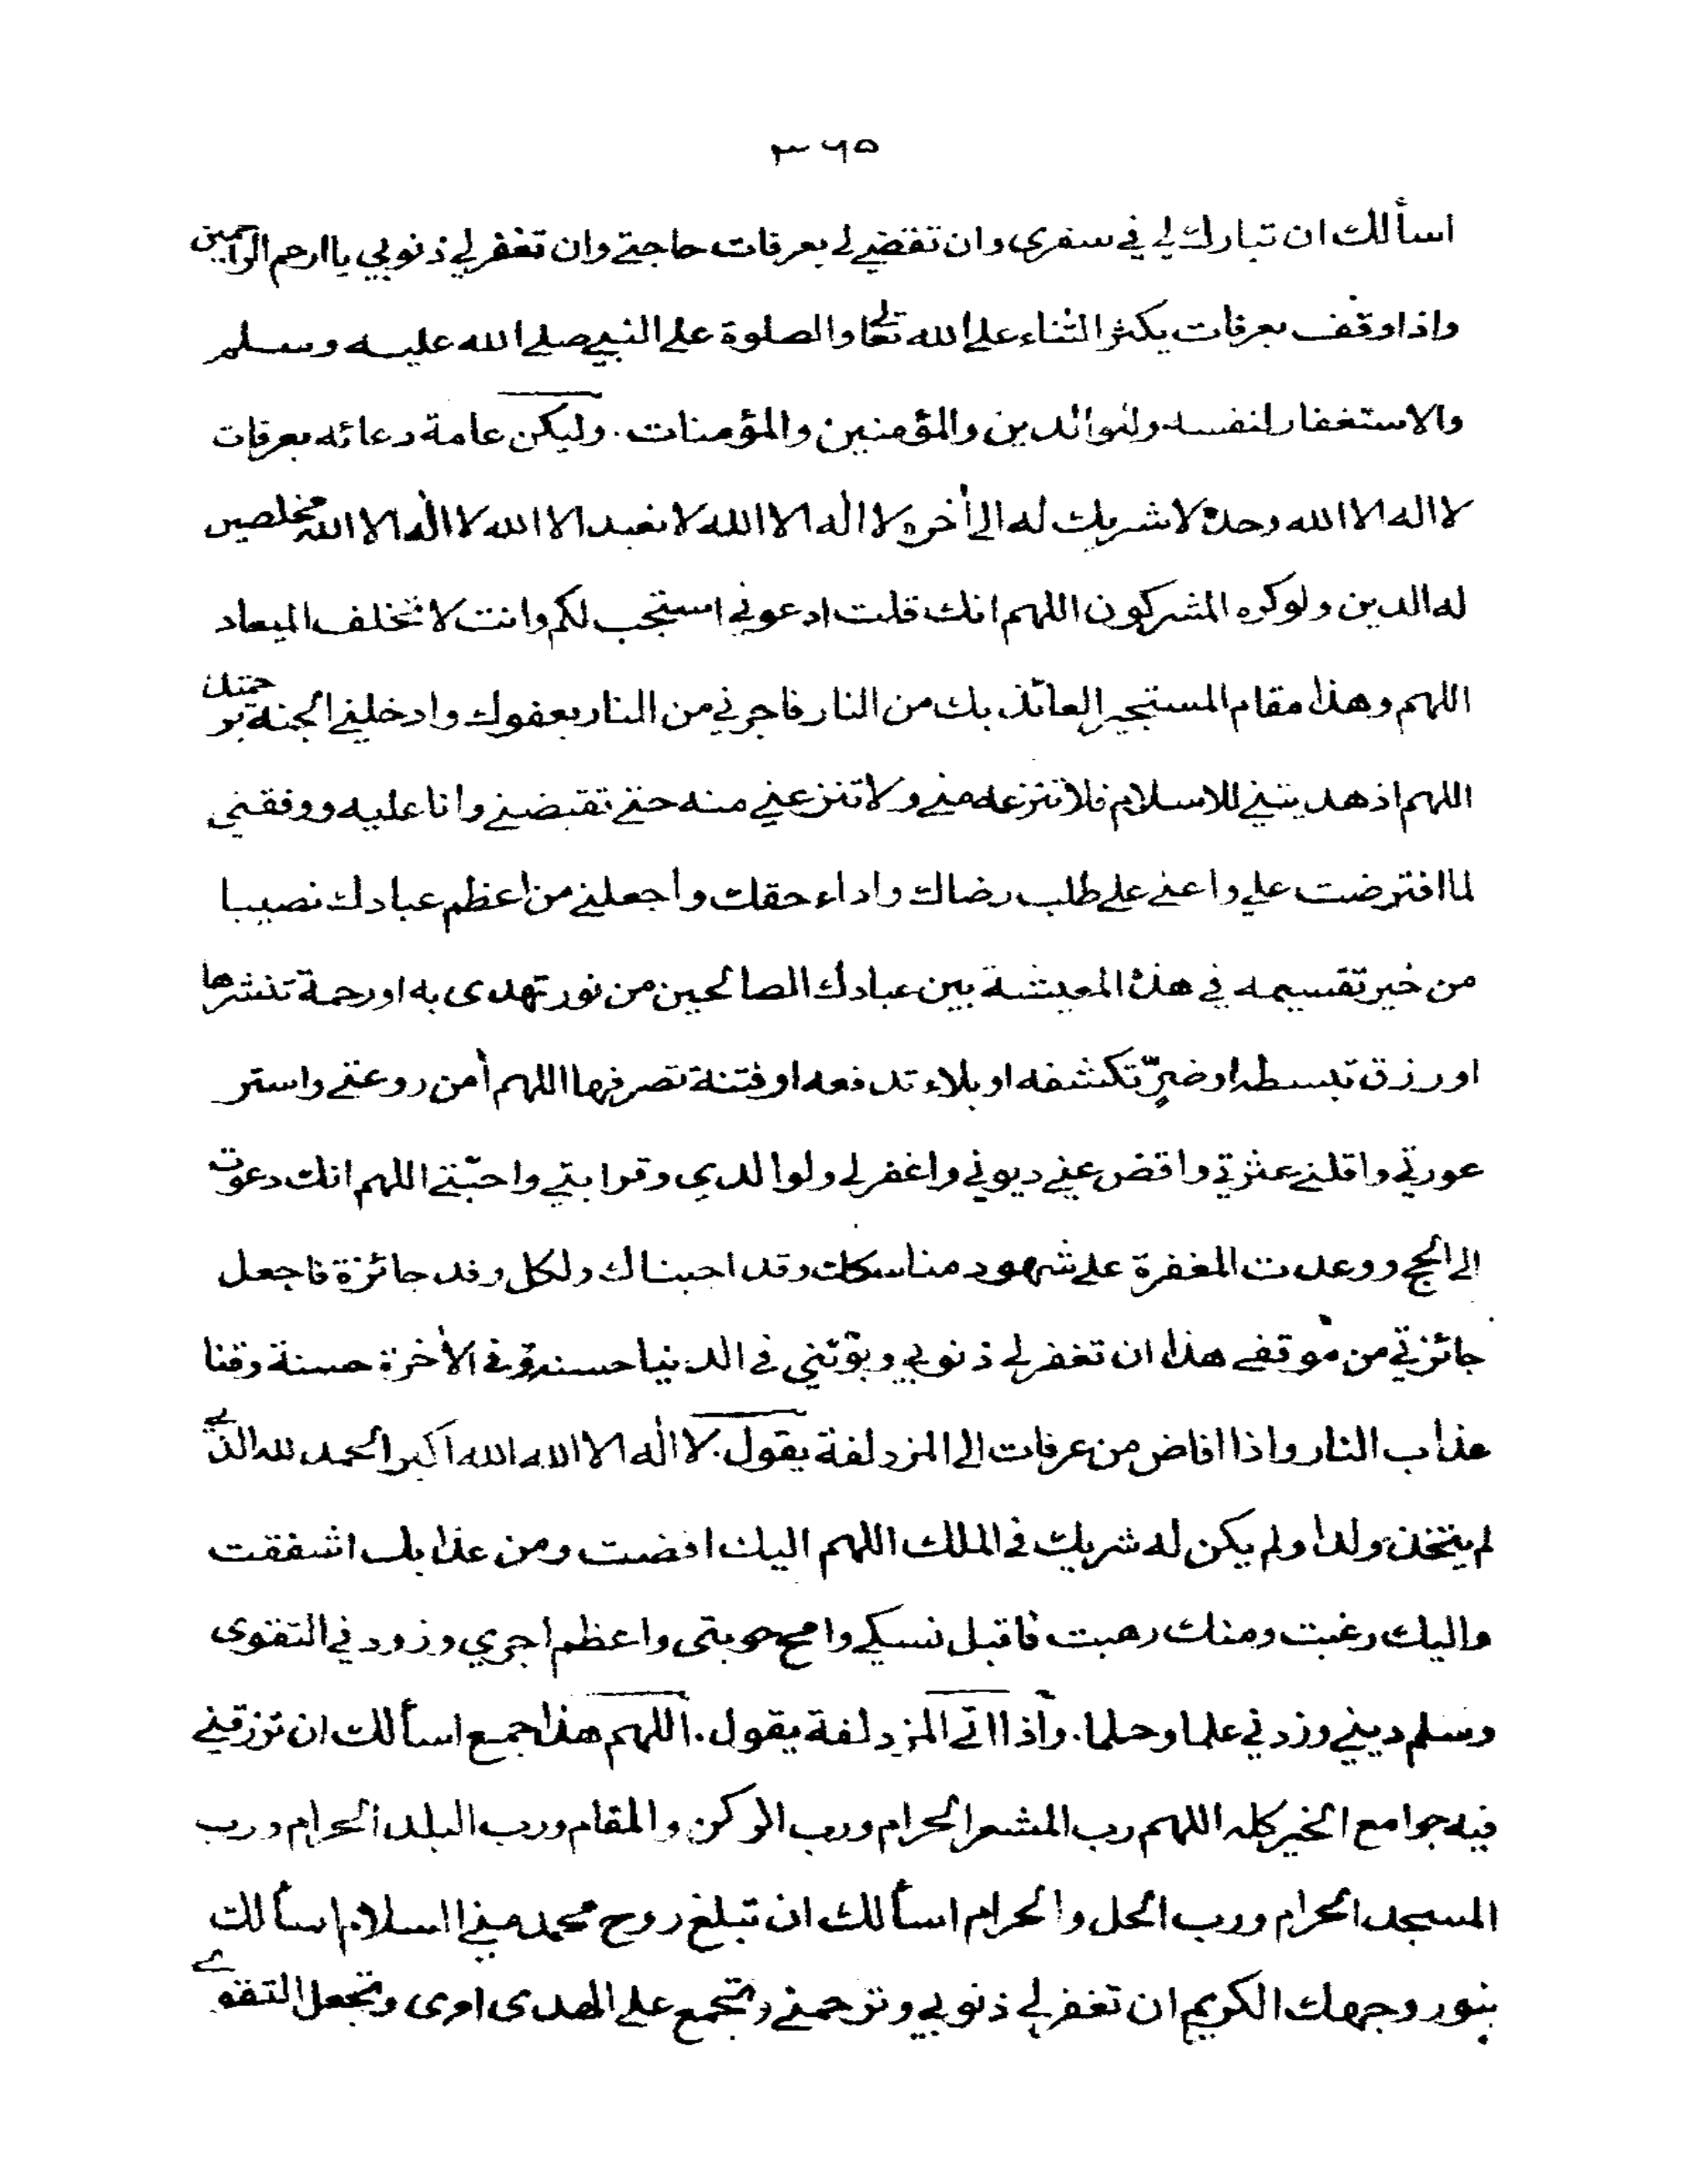 ٣٦٥
اسألك ان تبارك لي في سفرى وان تقضي لي بعرفات حاجتي وان تغفر لي ذنوبي يا ارحم الراحمين
واذا وقف بعرفات يكثر الثناء على الله تعالى والصلوة على النبي صلى الله عليه وسلم
والاستغفار لنفسه ولوالدين والمؤمنين والمؤمنات. وليكن عامة دعائه بعرفات
لا اله الا الله وحده لا شريك له الى أخره لا اله الا الله لا نعبد الا الله لا اله الا الله مخلصين
له الدين ولو كره المشركون اللهم انك قلت ادعوني استجب لكم وانت لا تخلف الميعاد
اللهم وهذا مقام المستجير العائذ بك من النار فاجرني من النار بعفوك وادخلني الجنة برحمتك
اللهم اذ هديتني للاسلام فلا تنزعه مني ولا تنزعني منه حتى تقبضني وانا عليه ووفقني
لما افترضت علي واعني على طلب رضاك واداء حقك واجعلني من اعظم عبادك نصيبا
من خير تقسيمه في هذه المعيشة بين عبادك الصالحين من نور تهدى به اورحمة تنشرها
اورزق تبسطه اوضرّ تكشفه اوبلاء تدفعه اوفتنة تصرفها اللهم أمن روعتي واستر
عورتي واقلني عثرتي واقض عني ديوني واغفر لي ولوالدي وقرابتي واحبّتي اللهم انك دعوت
الى الحج ووعدت المغفرة على شهود مناسكك وقد اجبناك ولكل وفد جائزة فاجعل
جائزتي من موقفي هذا ان تغفر لي ذنوبي وتؤتني في الدنيا حسنة وفي الأخرة حسنة وقنا
عذاب النار واذا افاض من عرفات الى المزدلفة يقول. لا اله الا الله الله اكبر الحمد لله الذي
لم يتخذ ولدا ولم يكن له شريك في الملك اللهم اليك افضت ومن عذابك اشفقت
واليك رغبت ومنك رهبت فاقبل نسكي وامح حوبتى واعظم اجري وزودني التقوى
وسلم ديني وزدني علما وحلما. واذا اتى المزدلفة يقول. اللهم هذا جمع اسألك ان ترزقني
فيه جوامع الخير كله اللهم رب المشعر الحرام ورب الركن والمقام ورب البلد الحرام ورب
المسجد الحرام ورب الحل والحرام اسألك ان تبلغ روح محمد مني السلام اسألك
بنور وجهك الكريم ان تغفر لي ذنوبي وترحمني وتجمع على الهدى امرى وتجعل التقوى